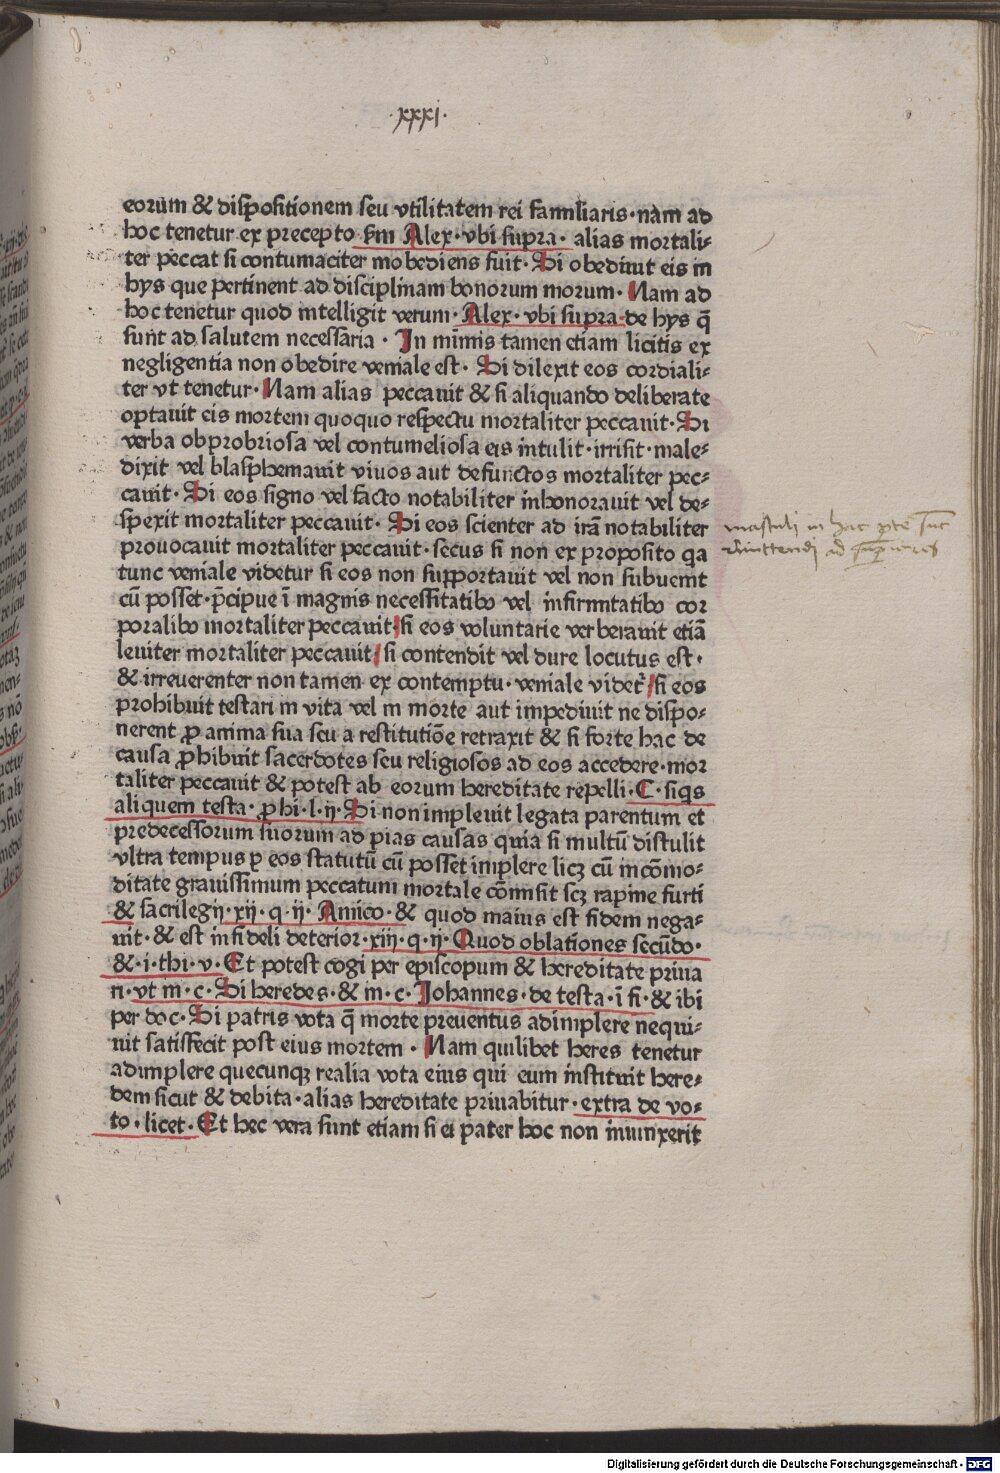 ·xxxj·
eorum & dispositionem seu vtilitatem rei familiaris·nam ad
hoc tenetur ex precepto scd̄m Alex·vbi supra· alias mortali-
ter peccat si contumaciter inobediens fuit· Si obediuit eis in
hys que pertinent ad disciplinam bonorum morum· Nam ad
hoc tenetur quod intelligit verum· Alex· vbi supra·de hys q̄
sunt ad salutem necessaria · In minis tamen etiam licitis ex
negligentia non obedire veniale est· Si dilexit eos cordiali-
ter vt tenetur·Nam alias peccauit & si aliquando deliberate
optauit eis mortem quoquo respectu mortaliter peccauit·Si
verba obprobriosa vel contumeliosa eis intulit·irrisit·male-
dixit vel blasphemauit viuos aut defunctos mortaliter pec-
cauit· Si eos signo vel facto notabiliter inhonorauit vel de-
spexit mortaliter peccauit· Si eos scienter ad irā notabiliter
prouocauit mortaliter peccauit·secus si non ex proposito qa
tunc veniale videtur si eos non supportauit vel non subuenit
cū posset·p̄cipue ī magnis necessitatibꝰ vel infirmitatibꝰ cor
poralibꝰ mortaliter peccauit·si eos voluntarie verberauit etiā
leuiter mortaliter peccauit/si contendit vel dure locutus est·
& irreuerenter non tamen ex contemptu·veniale videt᷑/si eos
prohibuit testari in vita vel in morte aut impediuit ne dispo-
nerent ꝓ anima sua seu a restitutiōe retraxit & si forte hac de
causa ꝓhibuit sacerdotes seu religiosos ad eos accedere·mor
taliter peccauit & potest ab eorum hereditate repelli·C·siqs
aliquem testa·ꝓhi·l·ij·Si non impleuit legata parentum et
predecessorum suorum ad pias causas quia si multū distulit
vltra tempus ꝑ eos statutū cū posset implere licꝫ cū incōmo-
ditate grauissimum peccatum mortale cōmisit scꝫ rapine furti
& sacrilegij·xij·q·ij·Amico·& quod maius est fidem nega-
uit·& est infideli deterior·xiij·q·ij·Quod oblationes secūdo·
&·i·thi·v·Et potest cogi per episcopum & hereditate priua
ri·vt in·c·Si heredes·& in·c·Johannes·de testa·ī fi·& ibi
per doc·Si patris vota q̄ morte preuentus adimplere nequi-
uit satisfecit post eius mortem · Nam quilibet heres tenetur
adimplere quecunqꝫ realia vota eius qui eum instituit here-
dem sicut & debita·alias hereditate priuabitur·extra de vo-
to·licet·Et hec vera sunt etiam si ei pater hoc non iniunxerit
masculi in hac pte sūt
Digitalisierung gefördert durch die Deutsche Forschungsgemeinschaft - DFG